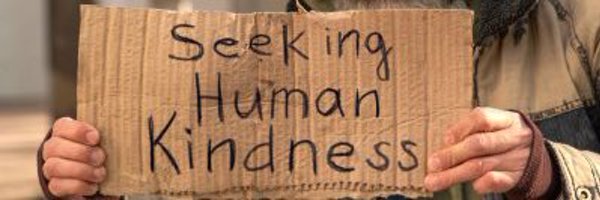 Seeking
Human
Kindness